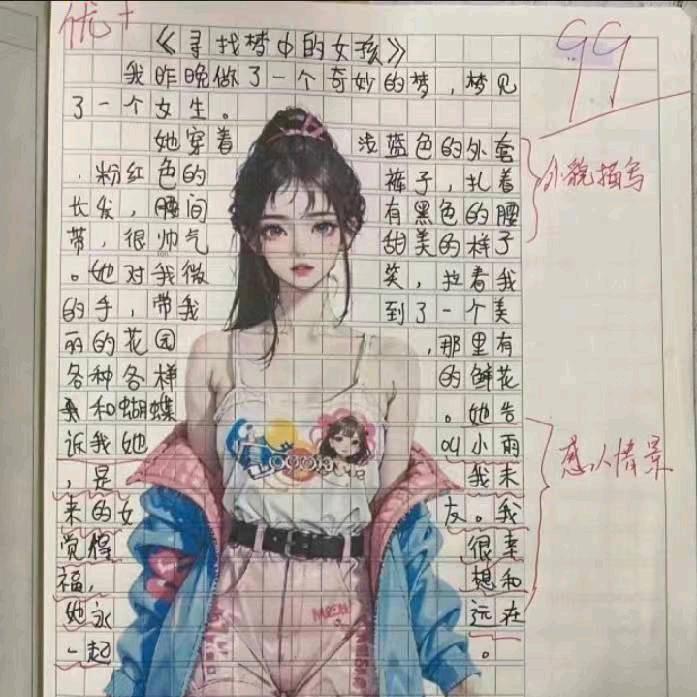 优+
99
《寻找梦中的女孩》
我昨晚做了一个奇妙的梦，梦见
了一个女生。
她穿着 浅蓝色的外套
，粉红色的 裤子，扎着
长发，腰间 有黑色的腰
带，很帅气 甜美的样子
。她对我微 笑，拉着我
的手，带我 到了一个美
丽的花园 ，那里有
各种各样 的鲜花
和蝴蝶 。她告
诉我她 叫小雨
，是 我未
来的女 友。我
觉得 很幸
福， 想和
她永 远在
一起 。
外貌描写
感人情景